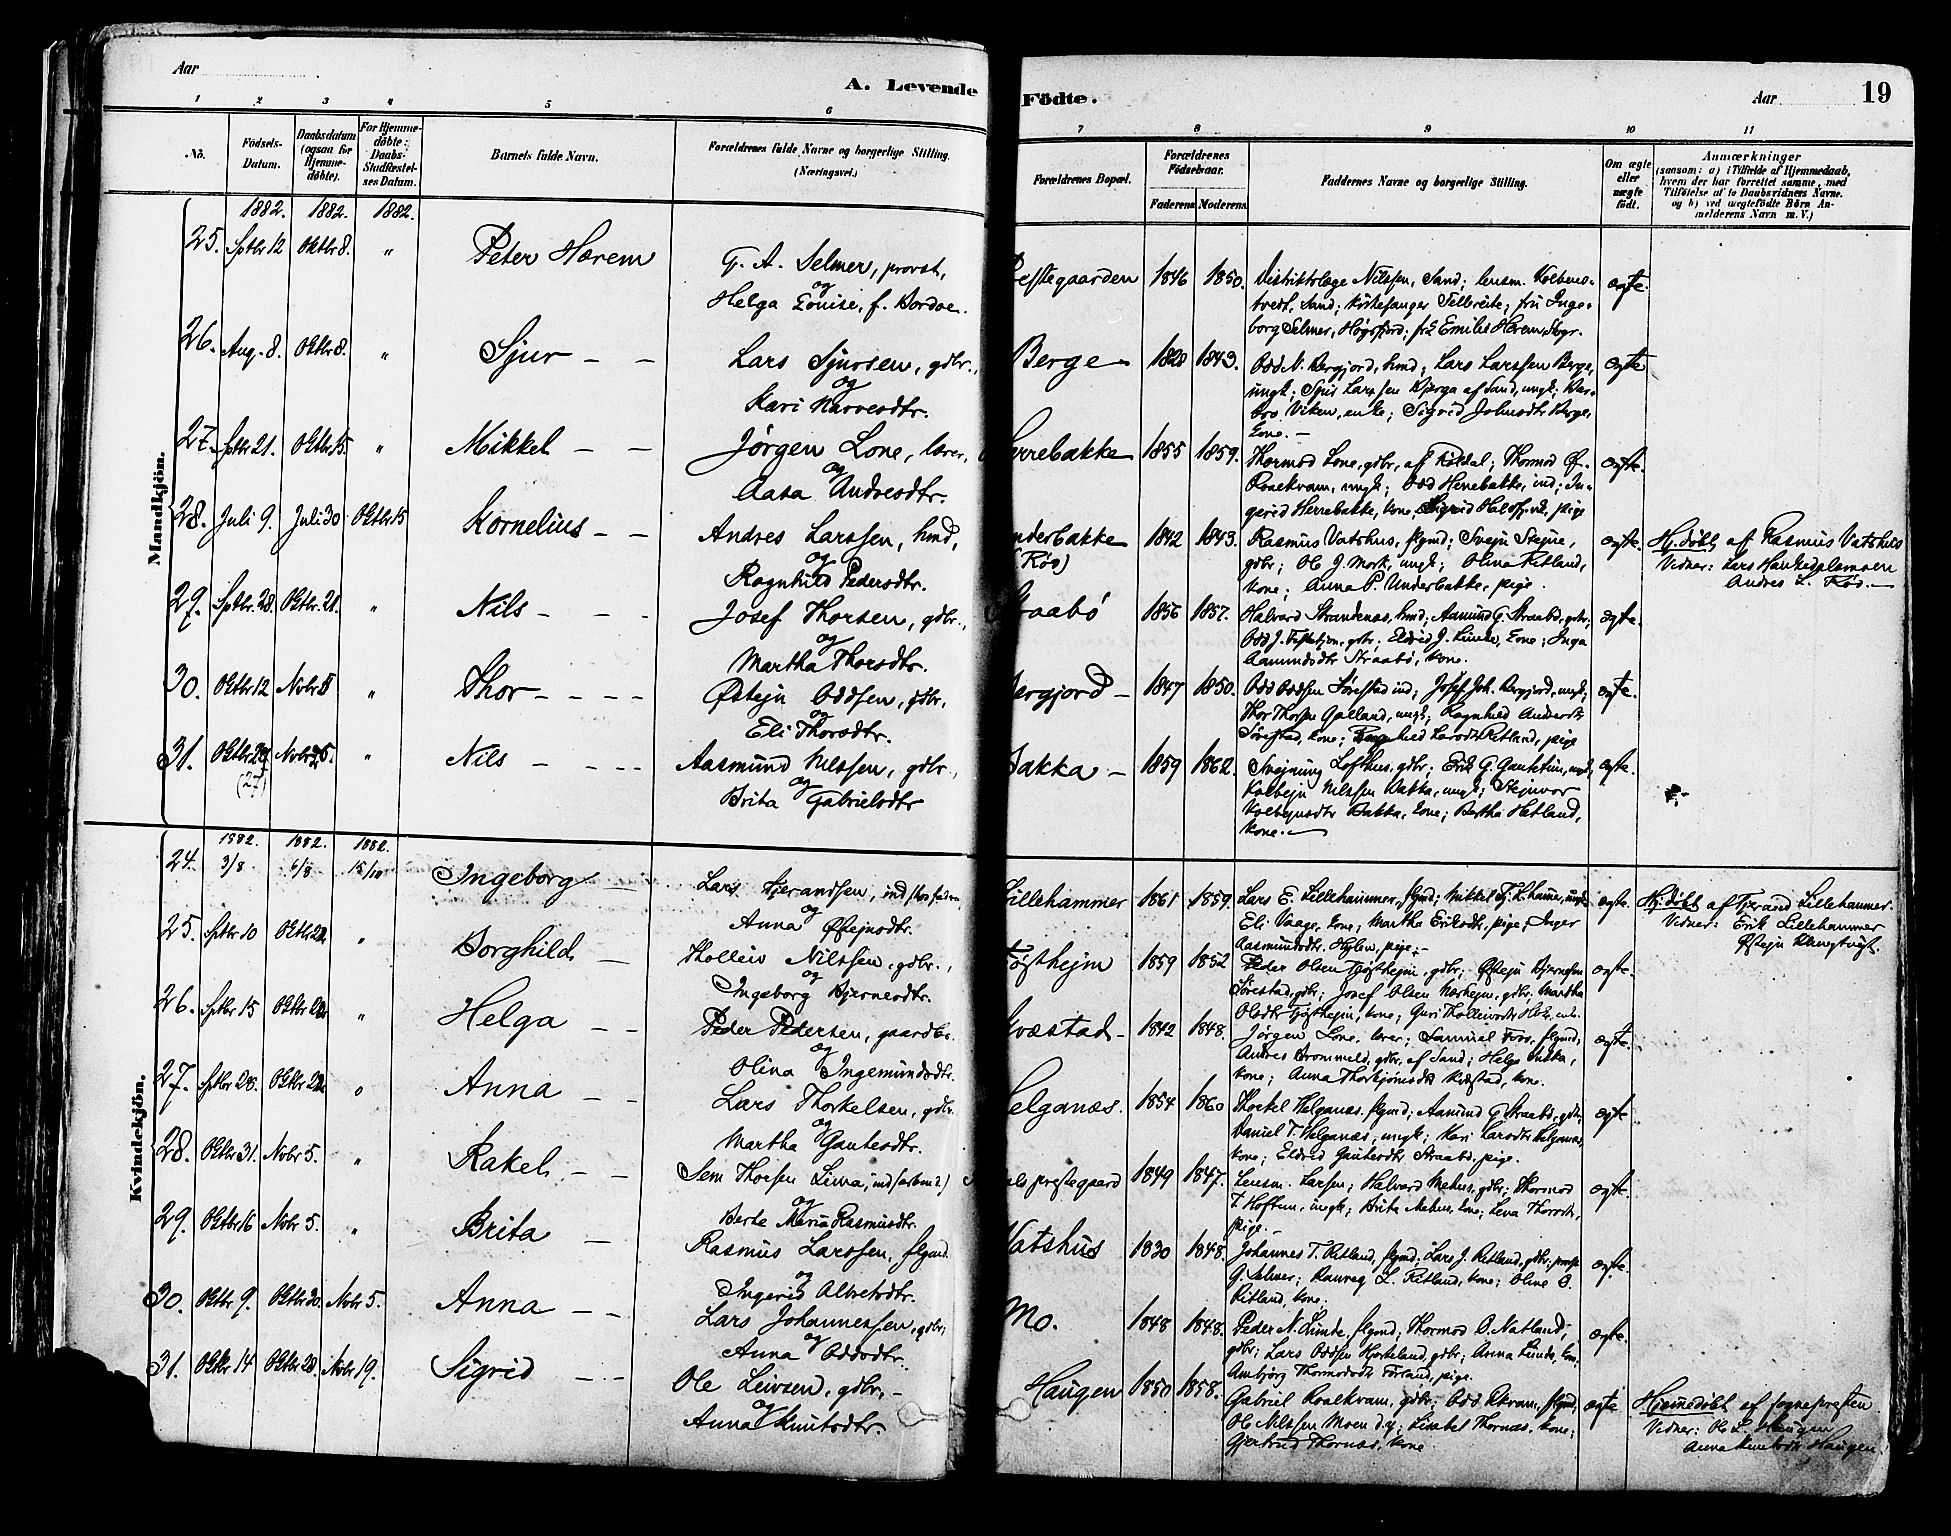 Aar
A. Levende Födte.
Aar
19
1 2 3 4 5 6 7 8 9 10 11
No.
Födsels-Datum.
Daabsdatum (ogsaa for Hjemme-döbte).
For Hjemme-döbte: Daabs-Stadfæstel-ses Datum.
Barnets fulde Navn.
Forældrenes fulde Navne og borgerlige Stilling. (Næringsvei.)
Forældrenes Bopæl.
Forældrenes Födselsaar.
Faderens Moderens
Faddernes Navne og borgerlige Stilling.
Om ægte eller uægte födt.
Anmærkninger
(saasom: a) i Tilfælde af Hjemmedaab,
hvem der har forrettet samme, med
Tilföielse af to Daabsvidners Navne.
og b) ved uægtefödte Börn An-
melderens Navn m. V.)
Mandkjön.
1882. 1882. 1882.
25. Sptbr 12 Oktbr 8. " Peter Hærem G. A. Selmer, provst, og Helga Louise, f. 1846 1850. ægte.
Distriktslæge Nilssen, Sand; lensm. Kolbens-
tvedt, Sand; kirkesanger Tellreite; fru Inge-
borg Selmer, Høgsfjord; frk Emilie Hærem,
26. Aug. 8. Oktbr 8. " Sjur Lars Sjursen, gdbr., og Kari Narvesdtr. Berge 1820 1843. ægte
Odd N. Bergjord, hmd; Lars Larssen Berge,
ungk; Sjur Larssen af Sand, ungk;
Viken, enke; Sigrid Johnsdtr Berge,
kone.
27. Sptbr 21. Oktbr 15. " Mikkel Jørgen Lone, lærer, og Aasa Andresdtr. Herrebakke 1855 1859. ægte.
Thormod Lone, gdbr, af Røldal; Thormod
Roalkvam, ungk; Odd Herrebakke, ind; In-
gered Herrebakke, kone, Sigrid pige
28. Juli 9. Juli 30 Oktbr 15 Kornelius Andres Larssen, hmd, og Ragnhild Pedersdtr. Underbakke (Røs) 1842 1843. ægte.
Rasmus Vatshus, flgmd; Svejn Stejne,
gdbr; Ole J. Mork, ungk; Olina Ritland,
kone; Anna P. Underbakke, pige.
Hj.døbt af Rasmus Vatshus
Vidner: Lars
Andres L. Røs.
29. Sptbr. 28. Oktbr. 21. " Nils Josef Thorsen, gdbr., og Martha Thorsdtr. Straabø 1856 1857. ægte.
Halvard Strandenæs, hmd; Aamund G. Straabø, gdbr;
Odd J. gdbr; Eldrid J. Lunde, kone; Inga
Aamundsdtr Straabø, kone.
30. Oktbr 12 Novbr 5 " Thor Østejn Oddsen, gdbr, og Eli Thorsdtr. Bergjord 1847 1850. ægte.
Odd Oddsen Sørestad ind; Josef Joh. Bergjord, ungk;
Thor Thorsen Galland, ungk; Ragnhild Andersdtr
Sørestad, kone; Ragnhild Larsdtr Ritland, pige
31. Oktbr 29 (27) Novbr 26. " Nils Aasmund Nilssen, gdbr., og Brita Gabrielsdtr Bakka 1859 1862. ægte.
Svejnung Lofthus, gdbr; Erik G. ungk;
Kolbejn Nilssen Bakka, ungk; Stejnvor
Kolbejnsdtr Bakka, kone; Bertha Hetland,
kone.
Kvindekjön.
1882. 1882. 1882.
24. 3/8 6/8 15/10 Ingeborg Lars Tjerandsen, ind og Anna Østejnsdtr. Lillehammer 1861 1859. ægte.
Lars E. Lillehammer, flgmd; Mikkel Tj. L.hamer, ungk
Eli Vaage, kone; Martha Eriksdtr, pige; Inger
Aasmundsdtr. Hylen, pige.
Hj.døbt af Tjerand Lillehammer.
Vidner: Erik Lillehammer
Østejn
25. Sptbr 10 Oktbr 22. " Borghild Tholleiv Nilssen, gdbr., og Ingeborg Bjernesdtr. Tjøsthejm 1859 1852 ægte.
Peder Olsen Tjøsthejm, gdbr; Østejn Bjernesen
Sørestad, gdbr; Josef Olsen gdbr; Martha
Olsdtr Tjøsthejm, kone; Guri Tholleivsdtr
26. Sptbr 15 Oktbr 22 " Helga Peder Pedersen, gaardbr. og Olina Ingemundsdtr. Kvæstad 1842 1848. ægte.
Jørgen Lone, lærer; Samuel Foss, flgmd;
Andres Brommeld, gdbr, af Sand; Helga
kone; Anna Thorbjørnsdtr Kvæstad, kone.
27. Sptbr 28 Oktbr 22 " Anna Lars Thorkelsen, gdbr. og Martha Gautesdtr. Helganæs. 1854 1860 ægte
Thorkel Helganæs, flgmd; Aamund G. Straabø, gdbr;
Daniel T. Helganæs, ungk; Kari Larsdtr Helganæs,
kone; Eldrid Gautesdtr Straabø, pige.
28. Oktbr 31. Novbr 5. " Rakel Sem Thorsen Lima, ind (arbmd.) og Berte Maria Rasmusdtr. prestegaard 1849 1847. ægte.
Lensm. Larsen; Halvard Mehus, gdbr; Thormod
T. Hoftun, ungk; Brita Mehus, kone; Lena Thorsdtr,
pige.
29. Oktbr 16 Novbr 5. " Brita Rasmus Larssen, flgmd. og Ingerid Albretsdtr. Vatshus 1830 1848. ægte.
Johannes T. Ritland, flgmd; Lars J. Ritland, gdbr; provst
G. Selmer; Ranveg L. Ritland, kone; Oline O.
Ritland, kone.
30. Oktbr 9. Oktbr 20. Novbr 5. Anna Lars Johannessen, gdbr, og Anna Oddsdtr. Mo. 1848 1848. ægte.
Peder N. Lunde, flgmd; Thormod O. Natland,
gdbr; Lars Oddsen Hjorteland, gdbr; Anna Lunde, kone.
Ambjørg Thormodsdtr Førland, pige.
31. Oktbr 14 Oktbr 28. Novbr 19. Sigrid Ole Leivsen, gdbr, og Anna Knutsdtr. Haugen 1850 1858. ægte
Gabriel Roalkvam, gdbr; Odd flgmd;
Ole Nilssen Moen d.y; Lisabet Thornæs, kone;
Gjertrud Thornæs, kone
Hjemmedøbt af sognepresten
Vidner: Ole L. Haugen
Anna Knutsdtr Haugen.